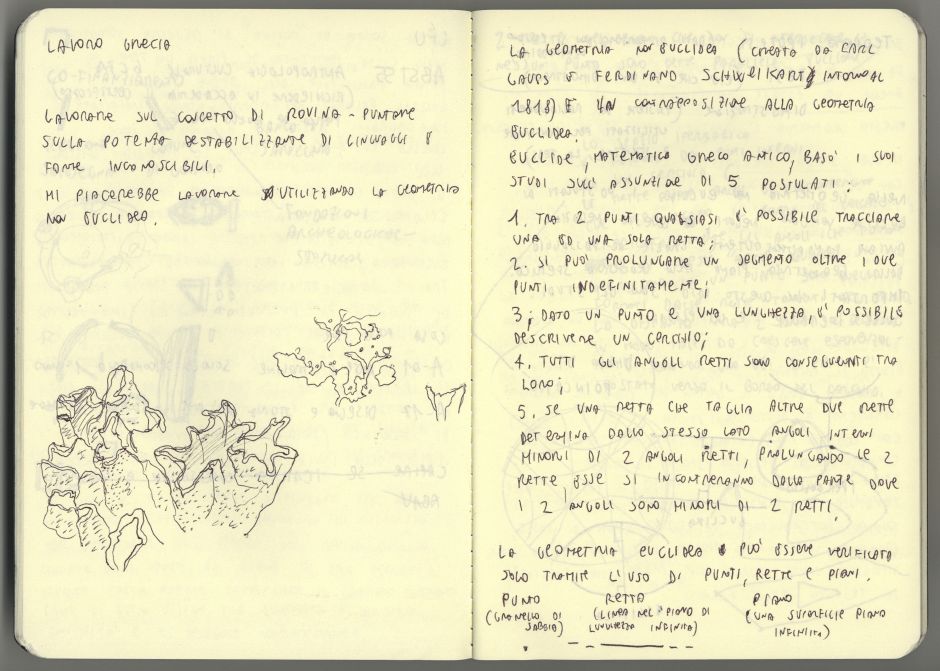 LAVORO GRECIA
LAVORARE SUL CONCETTO DI ROVINA - PUNTARE
SULLA POTENZA DESTABILIZZANTE DI LINGUAGGI E
FORME INCONOSCIBILI.
MI PIACEREBBE LAVORARE UTILIZZANDO LA GEOMETRIA
NON EUCLIDEA.
LA GEOMETRIA NON EUCLIDEA (CREATA DA CARL
GAUSS E FERDINAND SCHWEIKART INTORNO AL
1818) E' IN CONTRAPPOSIZIONE ALLA GEOMETRIA
EUCLIDEA.
EUCLIDE, MATEMATICO GRECO ANTICO, BASÒ I SUOI
STUDI SULL'ASSUNZIONE DI 5 POSTULATI:
1. TRA 2 PUNTI QUALSIASI È POSSIBILE TRACCIARE
UNA ED UNA SOLA RETTA;
2. SI PUÒ PROLUNGARE UN SEGMENTO OLTRE I DUE
PUNTI INDEFINITAMENTE;
3; DATO UN PUNTO E UNA LUNGHEZZA, È POSSIBILE
DESCRIVERE UN CERCHIO;
4. TUTTI GLI ANGOLI RETTI SONO CONSEGUENTI TRA
LORO;
5. SE UNA RETTA CHE TAGLIA ALTRE DUE RETTE
DETERMINA DALLO STESSO LATO ANGOLI INTERNI
MINORI DI 2 ANGOLI RETTI, PROLUNGANDO LE 2
RETTE ESSE SI INCONTRERANNO DALLA PARTE DOVE
I 2 ANGOLI SONO MINORI DI 2 RETTI.
LA GEOMETRIA EUCLIDEA PUÒ ESSERE VERIFICATA
SOLO TRAMITE L'USO DI PUNTI, RETTE E PIANI.
PUNTO RETTA PIANO
(GRANELLO DI (LINEA NEL PIANO DI (UNA SUPERFICIE PIANA
SABBIA) LUNGHEZZA INFINITA) INFINITA)